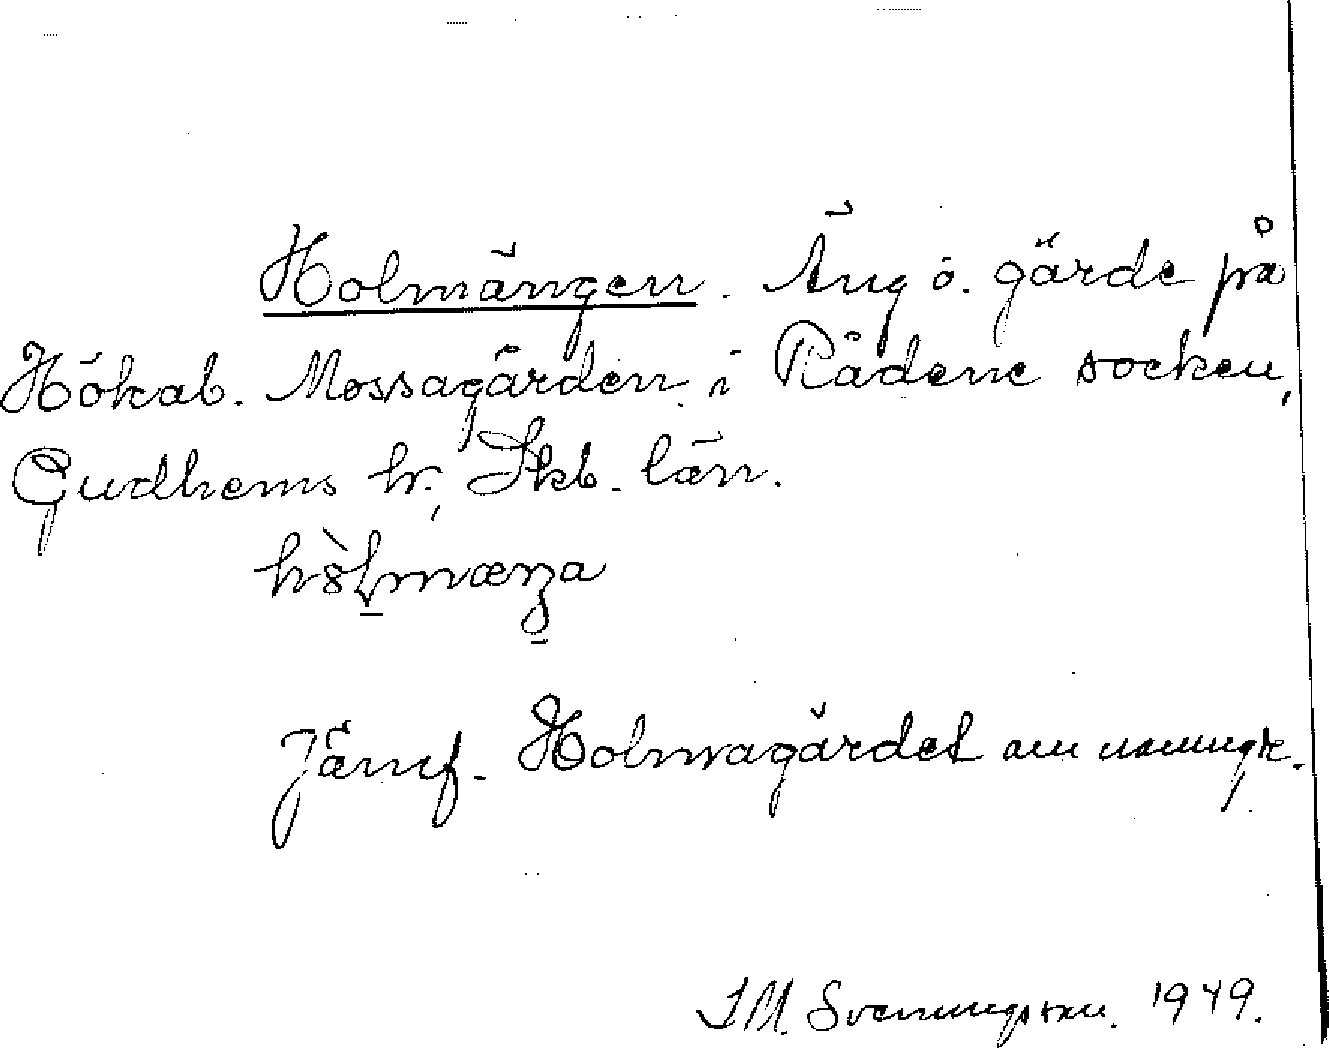 Holmängen. Äng o. gärde på
Hökab. Mossagården i Rådene socken,
Gudhems hr, Skb. län.
Jämf. Holmagärdet
S M. Svenningsson. 1949.